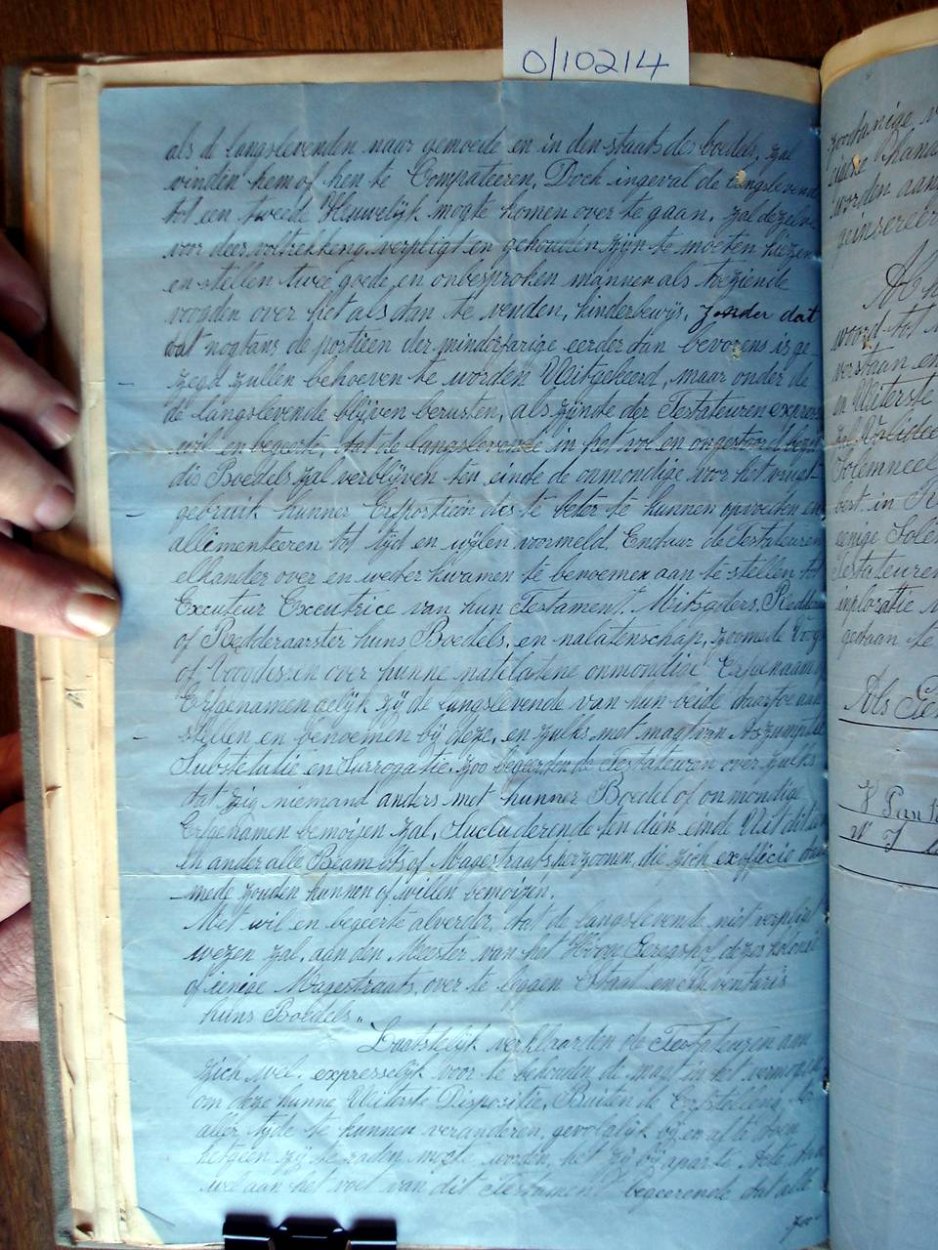 0/10214
als de langslevenden naar gemoede en in den staat des boedels, zal
vinden hem of hen te Competeeren, Doch ingeval de langslevende
tot een tweede Heuwelijk mogte komen over te gaan, zal dezelve
voor deer voltrekking, verpligt en gehouden zijn te moeten kiezen
en stellen twee goede en onbesproken mannen als toeziende
voogden over het als dan te venden, kinderbewijs, zonder dat
wat nogtans de portieen der minderjarige eerder dan bevorens is ge-
zegd zullen behoeven te worden Uitgekeerd, maar onder de
de langslevende blijven berusten, als zijnde der Testateuren expresse
wil en begeerte, dat de langslevende in het vol en ongestoord bezit
dis Boedels zal verblijven ten einde de onmondige voor het vrugt-
gebruik hunner Erfportien des te beter te kunnen opvoeden en
allementeeren tot tijd en wijlen voormeld. Enduur de Testateuren
elkander over en weder kwamen te benoemen aan te stellen tot
Executeur Executrice van hun Testament, Mitsgders, Redder
of Redderaarster huns Boedels, en nalatenschap, zoomede Voogd
of Voogdissen over hunne natelatene onmondige Erfgenaam of
Erfgenamen gelijk zij de langslevende van hun beide daartoe aan
stellen en benoemen bij deze, en zulks met magt van Aszumptie
Substetutie en Surrogatie, zoo begeerden de Testateuren over zulks
dat zig niemand anders met hunner Boedel of onmondige
Erfgenamen bemoijen zal, Secluderende ten dien einde Uit dien
en ander alle Beambts of Magestraats perzoonen, die zich exofficio daar
mede zouden kunnen of willen bemoijen.
Met wil en begeerte alverder, dat de langslevende niet verpligt
wezen zal, aan den Meester van het Hoog Geregtshof dezer kolonie
of eenige Magestraats, over te leggen Staat en Inventaris
huns Boedels.
Laatstelijk verklaarden de Testateuren aan
zich wel expresselijk voor te behouden, de magt in het vermogen
om deze hunne Uiterste Dispositie, Buiten de Erfstelling, te
aller tijde te kunnen veranderen, gevolglijk bij en al te doen
hetgeen zij te raden mogte worden, het zij bij aparte Acte dan
wel aan het voet van dit Testament begeerende dat alle
zoo-
zoodanige
worden aan
woord tot
verstaan en
en Uiterste
Solemneel
eenige
Testateuren
gedaan te
Als